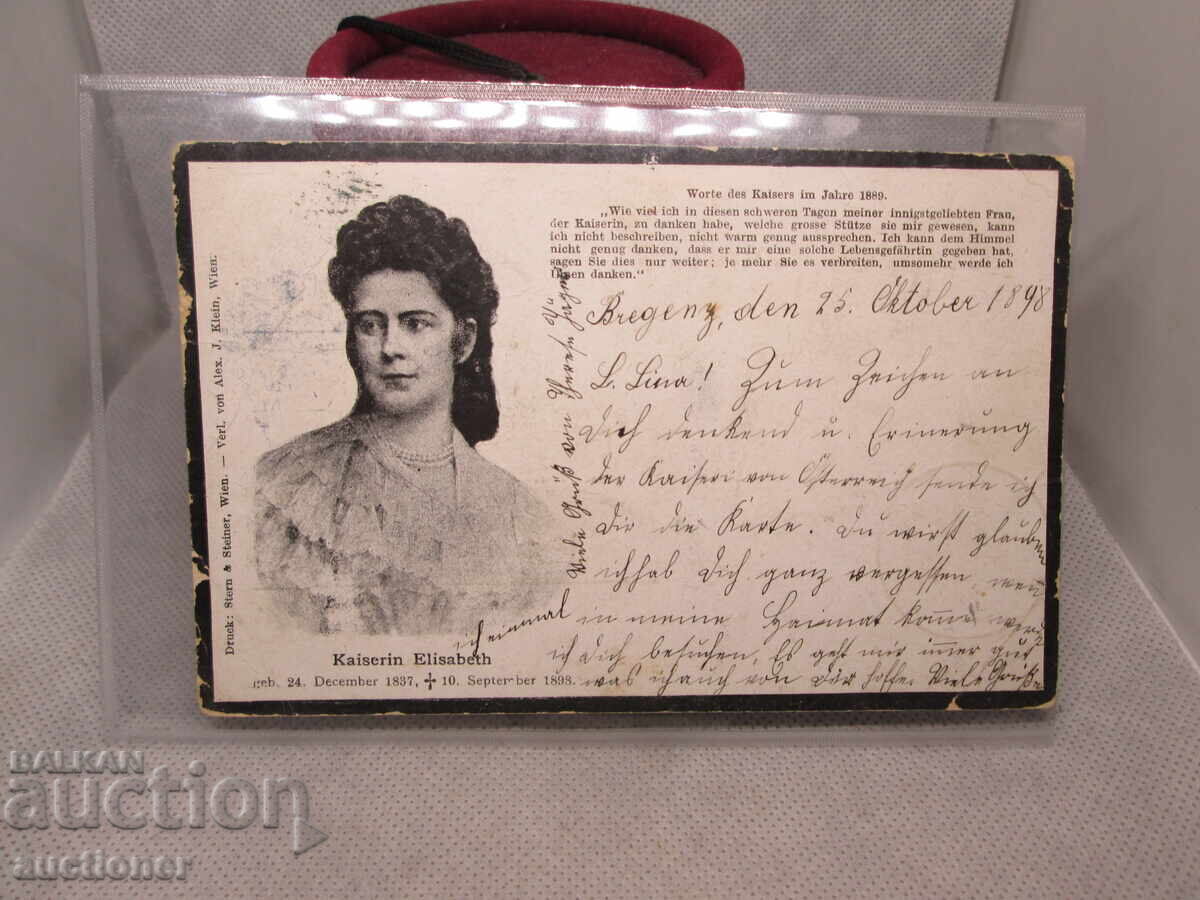 Worte des Kaisers im Jahre 1889.
„Wie viel ich in diesen schweren Tagen meiner innigstgeliebten Frau,
der Kaiserin, zu danken habe, welche grosse Stütze sie mir gewesen, kann
ich nicht beschreiben, nicht warm genug aussprechen. Ich kann dem Himmel
nicht genug danken, dass er mir eine solche Lebensgefährtin gegeben hat,
sagen Sie dies nur weiter; je mehr Sie es verbreiten, umsomehr werde ich
Ihnen danken.“
Bregenz, den 25. Oktober 1898
L. Lina! Zum Zeichen an
Dich denkend u. Erinerung
der Kaiseri von Österreich sende ich
Dir die Karte. Du wirst glauben
ich hab Dich ganz vergessen wen
ich einmal in meine Heimat kome werde
ich Dich besuchen, Es geht mir imer gut
was ich auch von Dir hoffe. Viele Grüße
Viele Grüß von Therese
Druck: Stern & Steiner, Wien. — Verl. von Alex. J. Klein, Wien.
Kaiserin Elisabeth
geb. 24. December 1837, ✝ 10. September 1898.
BALKAN
auction
auctioner